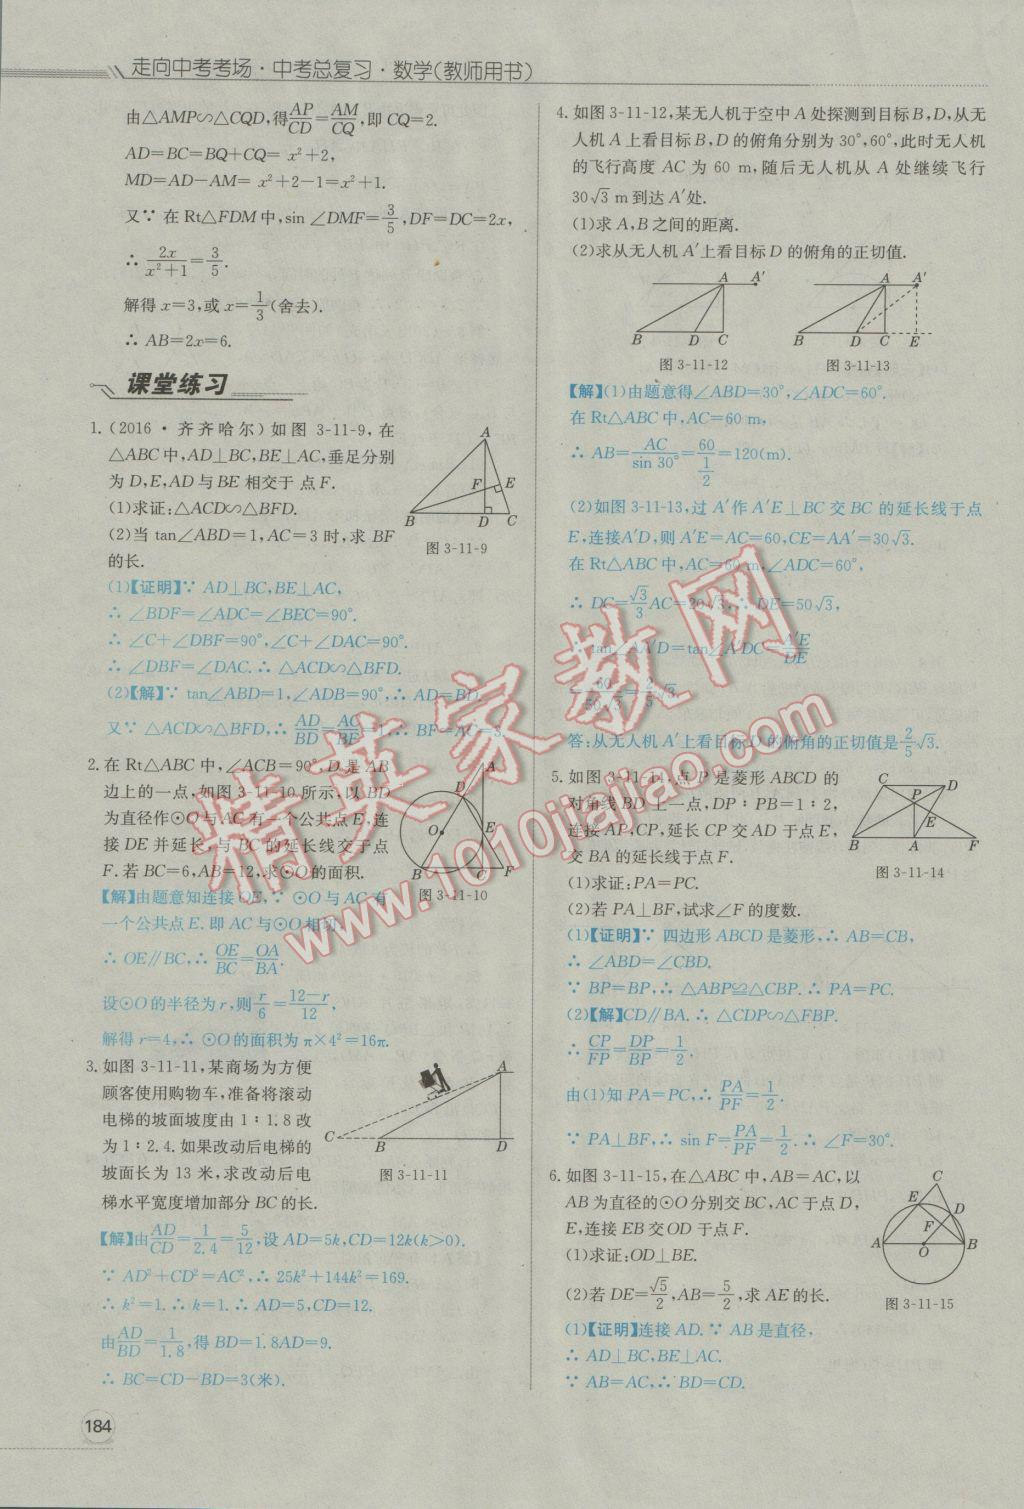 走向中考考场·中考总复习·数学(教师用书)
由△AMP∽△CQD,得AP/CD=AM/CQ,即CQ=2.
AD=BC=BQ+CQ= x²+2,
MD=AD−AM= x²+2−1=x²+1.
又∵ 在 Rt△FDM 中,sin ∠DMF=3/5,DF=DC=2x,
∴ 2x/(x²+1)=3/5.
解得 x=3,或 x=1/3(舍去).
∴ AB=2x=6.
课堂练习
1.(2016·齐齐哈尔)如图 3-11-9,在
△ABC中,AD⊥BC,BE⊥AC,垂足分别
为 D,E,AD与 BE 相交于 点F.
(1)求证:△ACD∽△BFD.
(2)当 tan∠ABD=1,AC=3 时,求 BF
的长.
A
F
E
B
D
C
图 3-11-9
(1)【证明】∵ AD⊥BC,BE⊥AC,
∴ ∠BDF=∠ADC=∠BEC=90°.
∴ ∠C+∠DBF=90°,∠C+∠DAC=90°.
∴ ∠DBF=∠DAC.∴ △ACD∽△BFD.
(2)【解】∵ tan∠ABD=1,∠ADB=90°,∴ AD=BD.
又∵ △ACD∽△BFD,∴ AD/BD=AC/BF=1,∴ BF=AC=3.
2.在 Rt△ABC 中,∠ACB=90°,D 是 AB
边上的一点,如图 3-11-10 所示,以 BD
为直径作⊙O 与 AC 有一个公共点 E,连
接 DE 并延长,与 BC 的延长线交于点
F.若 BC=6,AB=12,求⊙O的面积.
A
D
O
E
B
C
F
图 3-11-10
【解】由题意知连接 OE,∵ ⊙O 与 AC 有
一个公共点 E.即 AC 与⊙O 相切.
∴ OE∥BC,∴ OE/BC=OA/BA.
设⊙O 的半径为 r,则r/6=(12−r)/12,
解得 r=4,∴ ⊙O 的面积为 π×4²=16π.
3.如图 3-11-11,某商场为方便
顾客使用购物车,准备将滚动
电梯的坡面坡度由 1∶1.8 改
为 1∶2.4.如果改动后电梯的
坡面长为 13 米,求改动后电
梯水平宽度增加部分 BC 的长.
A
C
B
D
图 3-11-11
【解】由AD/CD=1/2.4=5/12,设 AD=5k,CD=12k(k>0).
∵ AD²+CD²=AC²,∴ 25k²+144k²=169.
∴ k²=1.∴ k=1.∴ AD=5,CD=12.
由AD/BD=1/1.8,得 BD=1.8AD=9.
∴ BC=CD−BD=3(米).
184
4.如图 3-11-12,某无人机于空中 A 处探测到目标 B,D,从无
人机 A 上看目标 B,D 的俯角分别为 30°,60°,此时无人机
的飞行高度 AC 为 60 m,随后无人机从 A 处继续飞行
30√3 m到达 A′处.
(1)求 A,B 之间的距离.
(2)求从无人机 A′上看目标 D 的俯角的正切值.
A
A′
B
D
C
图 3-11-12
A
A′
B
D
C
E
图 3-11-13
【解】(1)由题意得∠ABD=30°,∠ADC=60°.
在 Rt△ABC 中,AC=60 m,
∴ AB=AC/sin 30°=60/(1/2)=120(m).
(2)如图 3-11-13,过 A′作 A′E⊥BC 交 BC 的延长线于点
E,连接A′D,则 A′E=AC=60,CE=AA′=30√3.
在 Rt△ABC 中,AC=60 m,∠ADC=60°,
∴ DC=√3/3AC=20√3,∴ DE=50√3,
∴ tan∠AA′D=tan∠A′DC=A′E/DE
=60/50√3=2/5√3.
答:从无人机 A′上看目标 D 的俯角的正切值是2/5√3.
5.如图 3-11-14,点 P 是菱形 ABCD 的
对角线 BD 上一点,DP∶PB=1∶2,
连接 AP,CP,延长 CP 交 AD 于点 E,
交 BA 的延长线于点 F.
(1)求证:PA=PC.
(2)若 PA⊥BF,试求∠F 的度数.
C
D
P
E
B
A
F
图 3-11-14
(1)【证明】∵ 四边形 ABCD 是菱形,∴ AB=CB,
∴ ∠ABD=∠CBD.
∵ BP=BP,∴ △ABP≌△CBP.∴ PA=PC.
(2)【解】CD∥BA.∴ △CDP∽△FBP.
∴ CP/FP=DP/BP=1/2.
由(1)知 PA=PC,∴ PA/PF=1/2.
∵ PA⊥BF,∴ sin F=PA/PF=1/2.∴ ∠F=30°.
6.如图 3-11-15,在△ABC 中,AB=AC,以
AB 为直径的⊙O 分别交 BC,AC 于点 D,
E,连接 EB 交 OD 于点 F.
(1)求证:OD⊥BE.
(2)若 DE=√5/2,AB=5/2,求 AE 的长.
C
E
D
F
A
O
B
图 3-11-15
(1)【证明】连接 AD.∵ AB 是直径,
∴ AD⊥BC,BE⊥AC.
∵ AB=AC,∴ BD=CD.
精英家教网
www.1010jiajiao.com